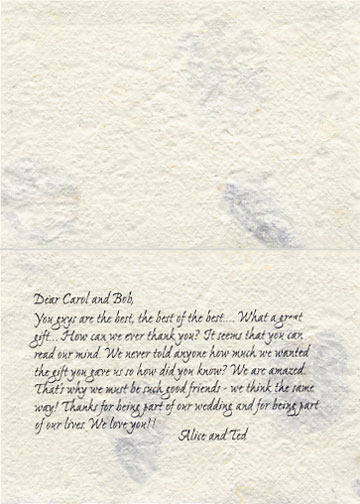 Dear Carol and Bob,
You guys are the best, the best of the best.... What a great
gift... How can we ever thank you? It seems that you can
read our mind. We never told anyone how much we wanted
the gift you gave us so how did you know? We are amazed.
That's why we must be such good friends - we think the same
way! Thanks for being part of our wedding and for being part
of our lives. We love you!!
Alice and Ted